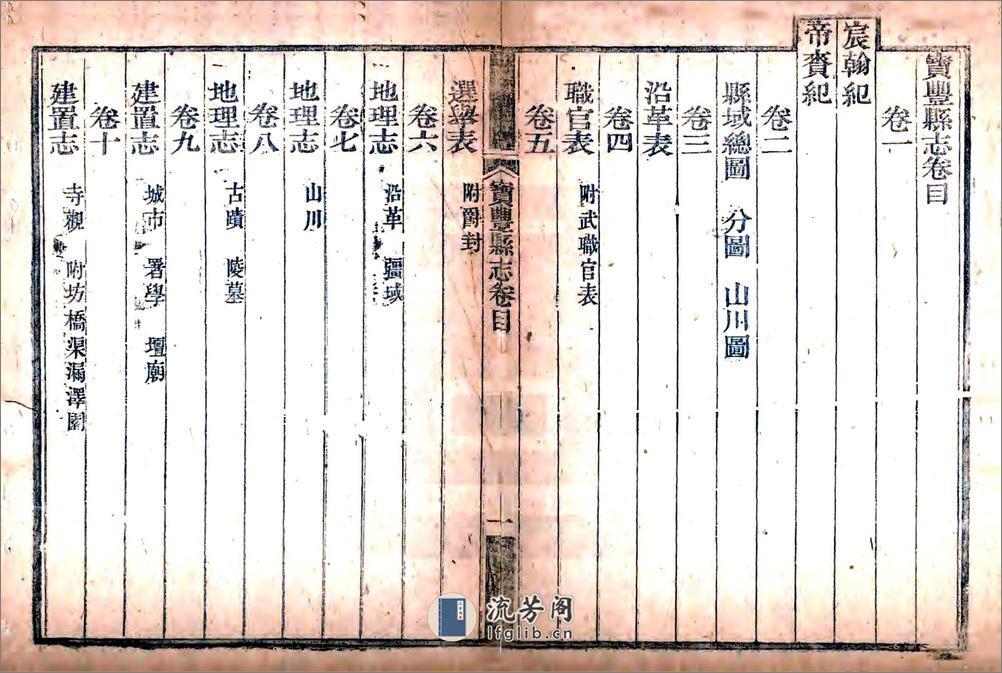 寶豐縣志卷目
卷一
宸翰紀
帝賚紀
卷二
縣域總圖 分圖 山川圖
卷三
沿革表
卷四
職官表 附武職官表
卷五
寶豐縣志卷目 一
選舉表 附爵封
卷六
地理志 沿革 疆域
卷七
地理志 山川
卷八
地理志 古蹟 陵墓
卷九
建置志 城市 署學 壇廟
卷十
建置志 寺觀 附坊橋渠漏澤園
流芳阁
lfglib.cn